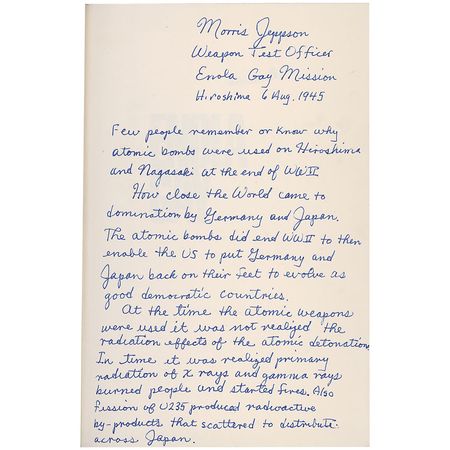 Morris Jeppson
Weapon Test Officer
Enola Gay Mission
Hiroshima 6 Aug. 1945
Few people remember or know why
atomic bombs were used on Hiroshima
and Nagasaki at the end of WWII
How close the World came to
domination by Germany and Japan.
The atomic bombs did end WWII to then
enable the US to put Germany and
Japan back on their feet to evolve as
good democratic countries.
At the time the atomic weapons
were used it was not realized the
radiation effects of the atomic detonation
In time it was realized primary
radiation of X rays and gamma rays
burned people and started fires. Also
fission of U235 produced radioactive
by-products that scattered to distribute
across Japan.